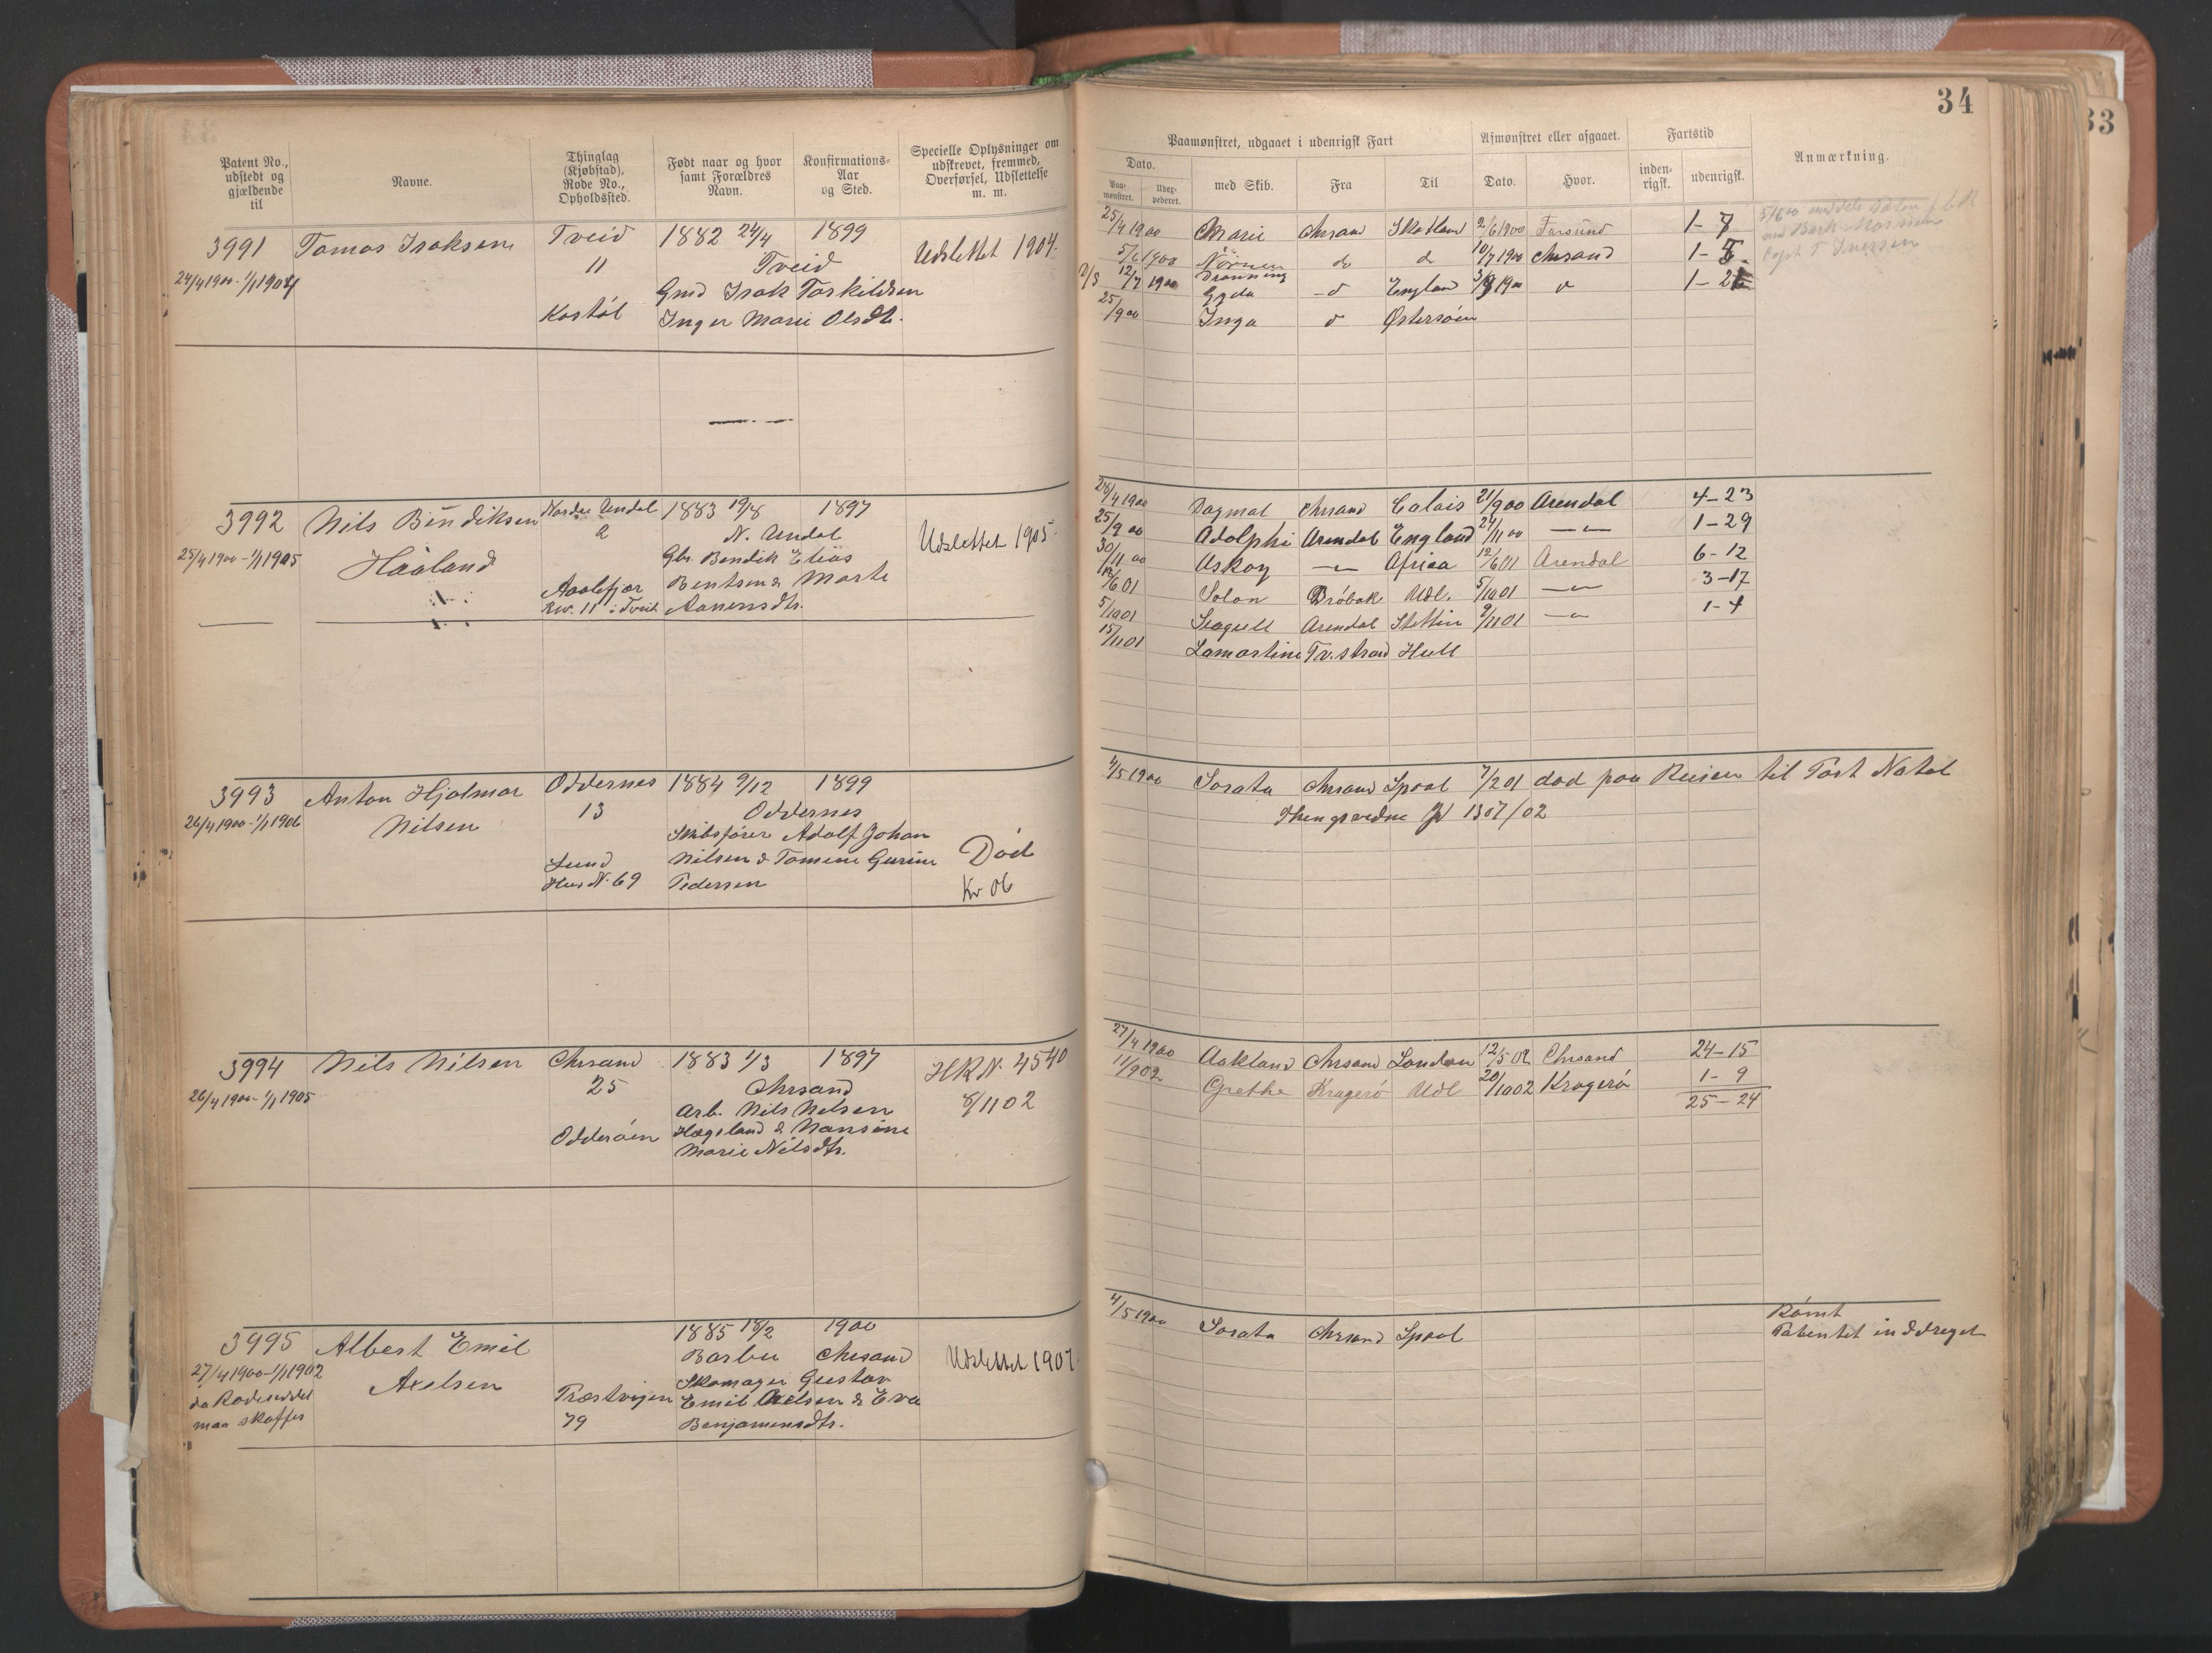 34
33
Patent No., udstedt og gjældende til
Navne.
Thinglag (Kjøbstad), Rode No., Opholdssted.
Født naar og hvor samt Forældres Navn.
Konfirmations-Aar og Sted.
Specielle Oplysninger om udskrevet, fremmed, Overførsel, Udslettelse m. m.
Paamønstret, udgaaet i udenrigsk Fart
Afmønstret eller afgaaet.
Fartstid
Anmærkning.
Dato.
Paa-mønstret.
med Skib.
Fra
Til
Dato.
Hvor.
inden-rigsk.
udenrigsk.
3991 Tomas Isaksen Tveid 1882 24/4 1899 Udslettet 1904.
24/4 1900-1/1 1904 11 Tveid
Gmd Isak Torkildsen
Kostøl Inger Marie Olsdtr.
25/4 1900 Marie Chrsand Skotland 2/6 1900 Farsund 1-7
5/6 1900 Nörnen do d 10/7 1900 Chrsand 1-5
12/7 1900 Dronning Gyda d England d 1-2
25/9 00 Inga d Østersøen
3992 Nils Bendiksen Nordre Undal 1883 19/8 1897 Udslettet 1905.
25/4 1900-1/1 1905 Håaland 2 N. Undal
Gbr. Bendik Elias
Aalefjær Bentsen & Marte
Rev. 11 i Tveit Aanensdtr.
28/4 1900 Dagmar Chrsand Calais 21/9 00 Arendal 4-23
25/9 00 Adolphi Arendal England 24/11 00 -"- 1-29
30/11 00 Askoy -"- Africa 12/6 01 Arendal 6-12
/6 01 Solon Dröbak Udl. 5/10 01 -"- 3-17
5/10 01 Seagull Arendal Stettin 9/11 01 -"- 1-4
15/11 01 Lamartine Tv.strand Hull
3993 Anton Hjalmar Oddernes 1884 9/12 1899
26/4 1900-1/1 1906 Nilsen 13 Oddernes
Skibsfører Adolf Johan
Lund Nilsen & Tomine Gurine Død
Hus N. 69 Pedersen Kv 06
4/5 1900 Sorata Chrsand Lpool 7/2 01 død paa Reisen til Port Natal
1307/02
3994 Nils Nilsen Chrsand 1883 1/3 1897 HR N. 4540
26/4 1900-1/1 1905 25 Chrsand 8/11 02
Arb. Nils Nilsen
Odderøen Hægeland & Nansine
Marie Nilsdtr.
27/4 1900 Aakland Chrsand London 12/5 02 Chrsand 24-15
11/9 02 Grethe Kragerö Udl 20/10 02 Kragerö 1-9
25-24
3995 Albert Emil 1885 18/2 1900
27/4 1900-1/1 1902 Axelsen Barbu Chrsand Udslettet 1907.
da Rodeseddel Skomager Gustav
maa skaffes Præstvigen Emil Axelsen & Eva
79 Benjaminsdtr.
4/5 1900 Sorata Chrsand Lpool Römt
Patentet inddraget